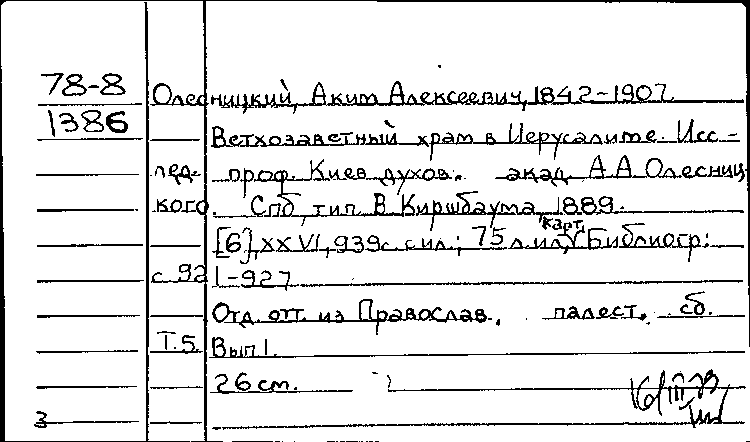 78-8
Олесницкий, Аким Алексеевич, 1842-1907.
1386
Ветхозаветный храм в Иерусалиме. Исс-
лед. проф. Киев духов. акад. А А Олесниц-
кого. Спб, тип В Киршбаума, 1889.
[6], XXVI, 939с. с ил.; 75 л. ил, карт. Библиогр:
с 921-927
Отд. отт. из Православ. палест. сб.
Т.5. Вып 1.
26 см.
16/III 79
3